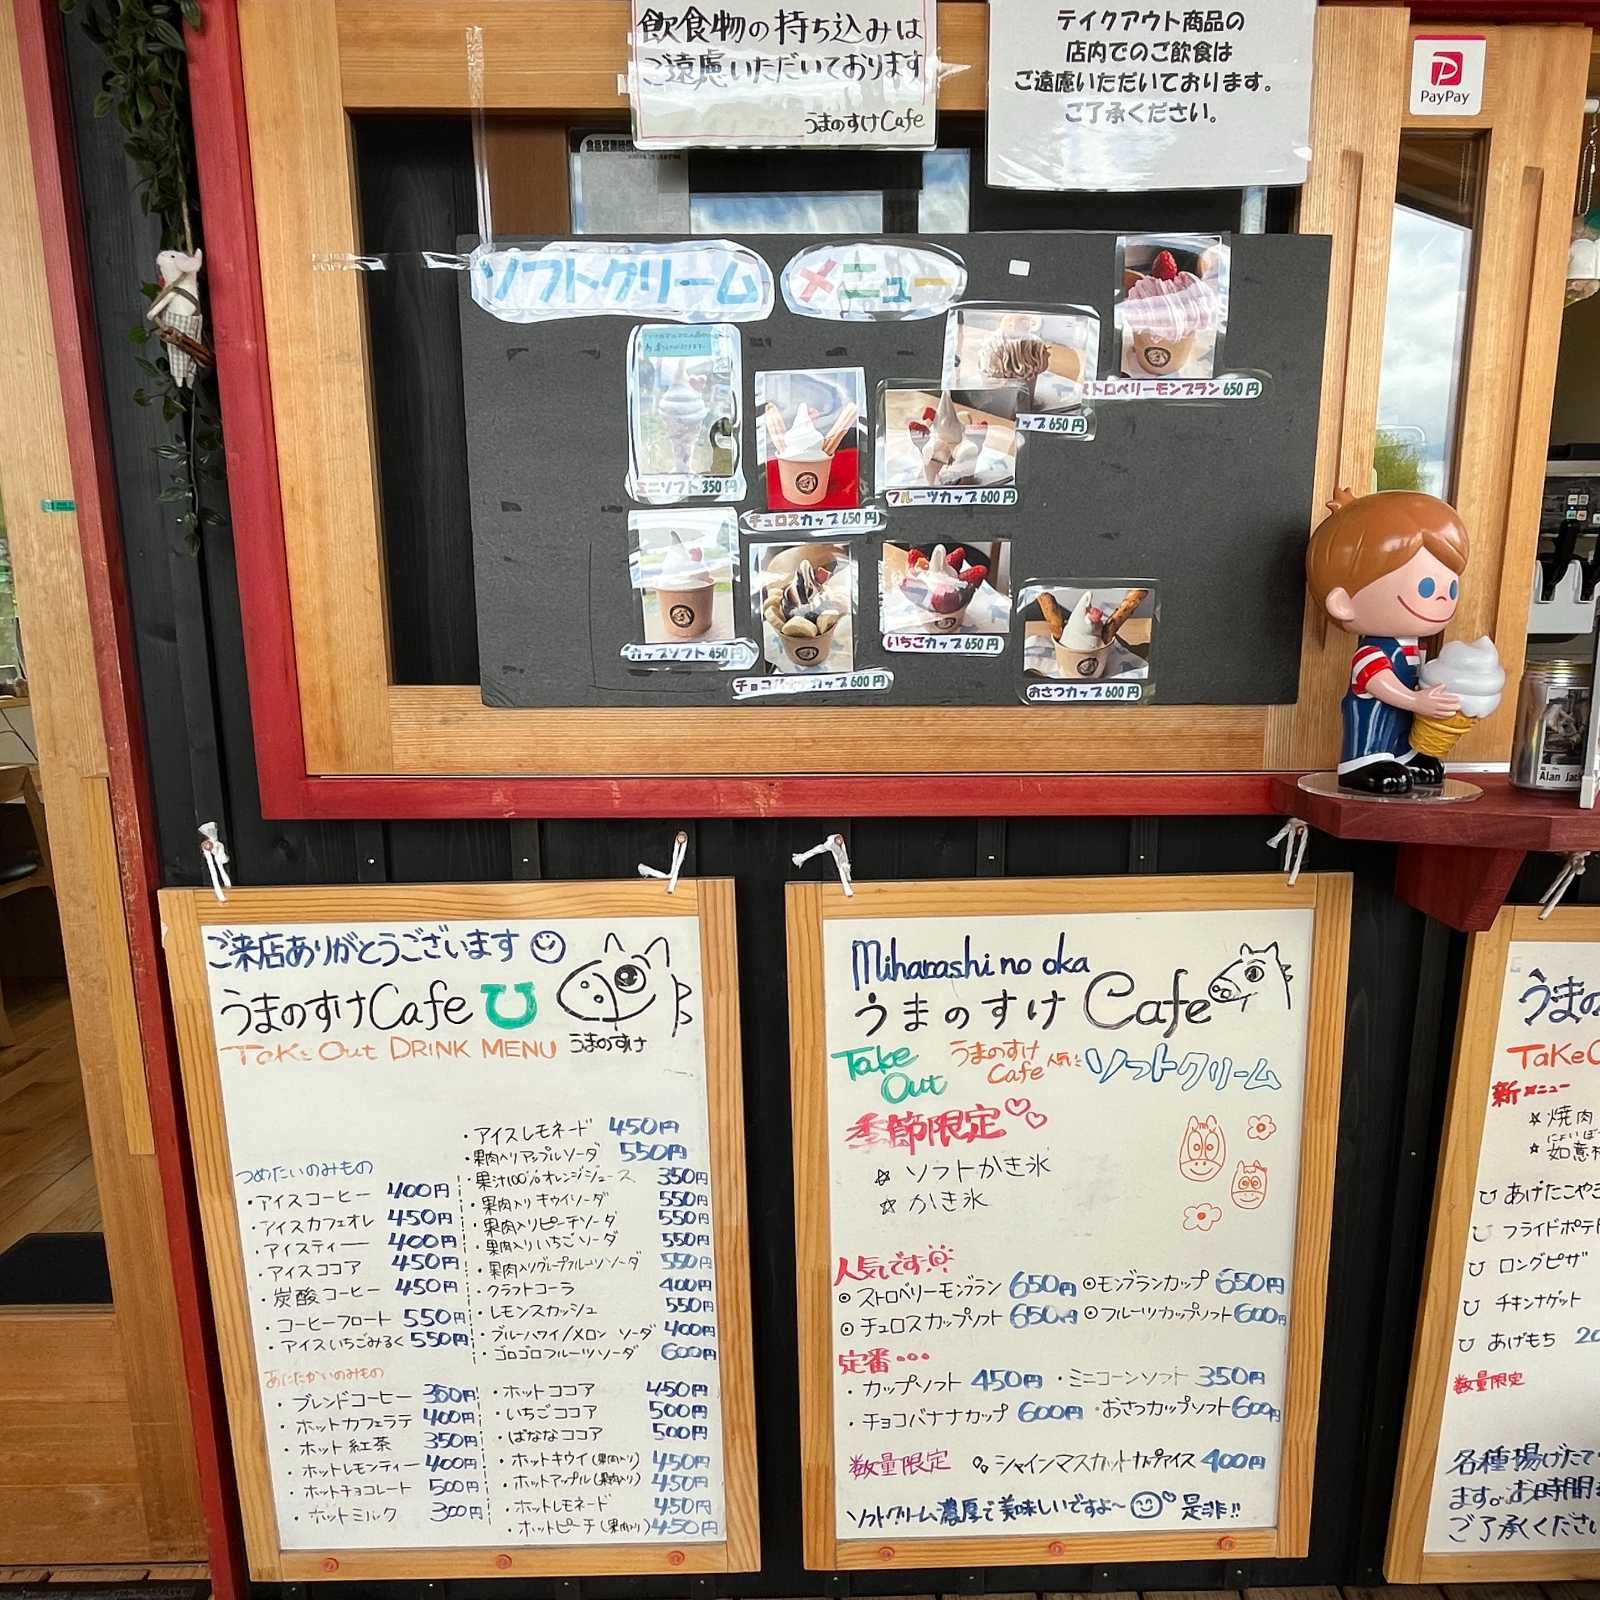 飲食物の持ち込みは
ご遠慮いただいております
うまのすけCafe
テイクアウト商品の
店内でのご飲食は
ご遠慮いただいております。
ご了承ください。
PayPay
ソフトクリーム メニュー
ストロベリーモンブラン 650円
ップ 650円
ミニソフト 350円
チュロスカップ 650円
フルーツカップ 600円
カップソフト 450円
チョコバナナカップ 600円
いちごカップ 650円
おさつカップ 600円
Alan Jack
ご来店ありがとうございます
うまのすけCafe
うまのすけ
Take Out DRINK MENU
つめたいのみもの
・アイスコーヒー 400円
・アイスカフェオレ 450円
・アイスティー 400円
・アイスココア 450円
・炭酸コーヒー 450円
・コーヒーフロート 550円
・アイスいちごみるく 550円
・アイスレモネード 450円
・果肉入りアップルソーダ 550円
・果汁100%オレンジジュース 350円
・果肉入りキウイソーダ 550円
・果肉入りピーチソーダ 550円
・果肉入りいちごソーダ 550円
・果肉入りグレープフルーツソーダ 550円
・クラフトコーラ 400円
・レモンスカッシュ 550円
・ブルーハワイ/メロン ソーダ 400円
・ゴロゴロフルーツソーダ 600円
あたたかいのみもの
・ブレンドコーヒー 350円
・ホットカフェラテ 400円
・ホット紅茶 350円
・ホットレモンティー 400円
・ホットチョコレート 500円
・ホットミルク 300円
・ホットココア 450円
・いちごココア 500円
・ばななココア 500円
・ホットキウイ(果肉入り) 450円
・ホットアップル(果肉入り) 450円
・ホットレモネード 450円
・ホットピーチ(果肉入り) 450円
Miharashi no oka
うまのすけ Cafe
Take Out
うまのすけ Cafe 人気の ソフトクリーム
季節限定
☆ ソフトかき氷
☆ かき氷
人気です
◎ ストロベリーモンブラン 650円 ◎モンブランカップ 650円
◎ チュロスカップソフト 650円 ◎フルーツカップソフト 600円
定番・・・
・カップソフト 450円 ・ミニコーンソフト 350円
・チョコバナナカップ 600円 ・おさつカップソフト 600円
数量限定 シャインマスカットカップアイス 400円
ソフトクリーム濃厚で美味しいですよ〜 是非!!
うまの
TakeO
新メニュー
☆焼肉
☆如意
あげたこやき
フライドポテト
ロングピザ
チキンナゲット
あげもち 20
数量限定
各種揚げたて
ます。お時間
ご了承ください